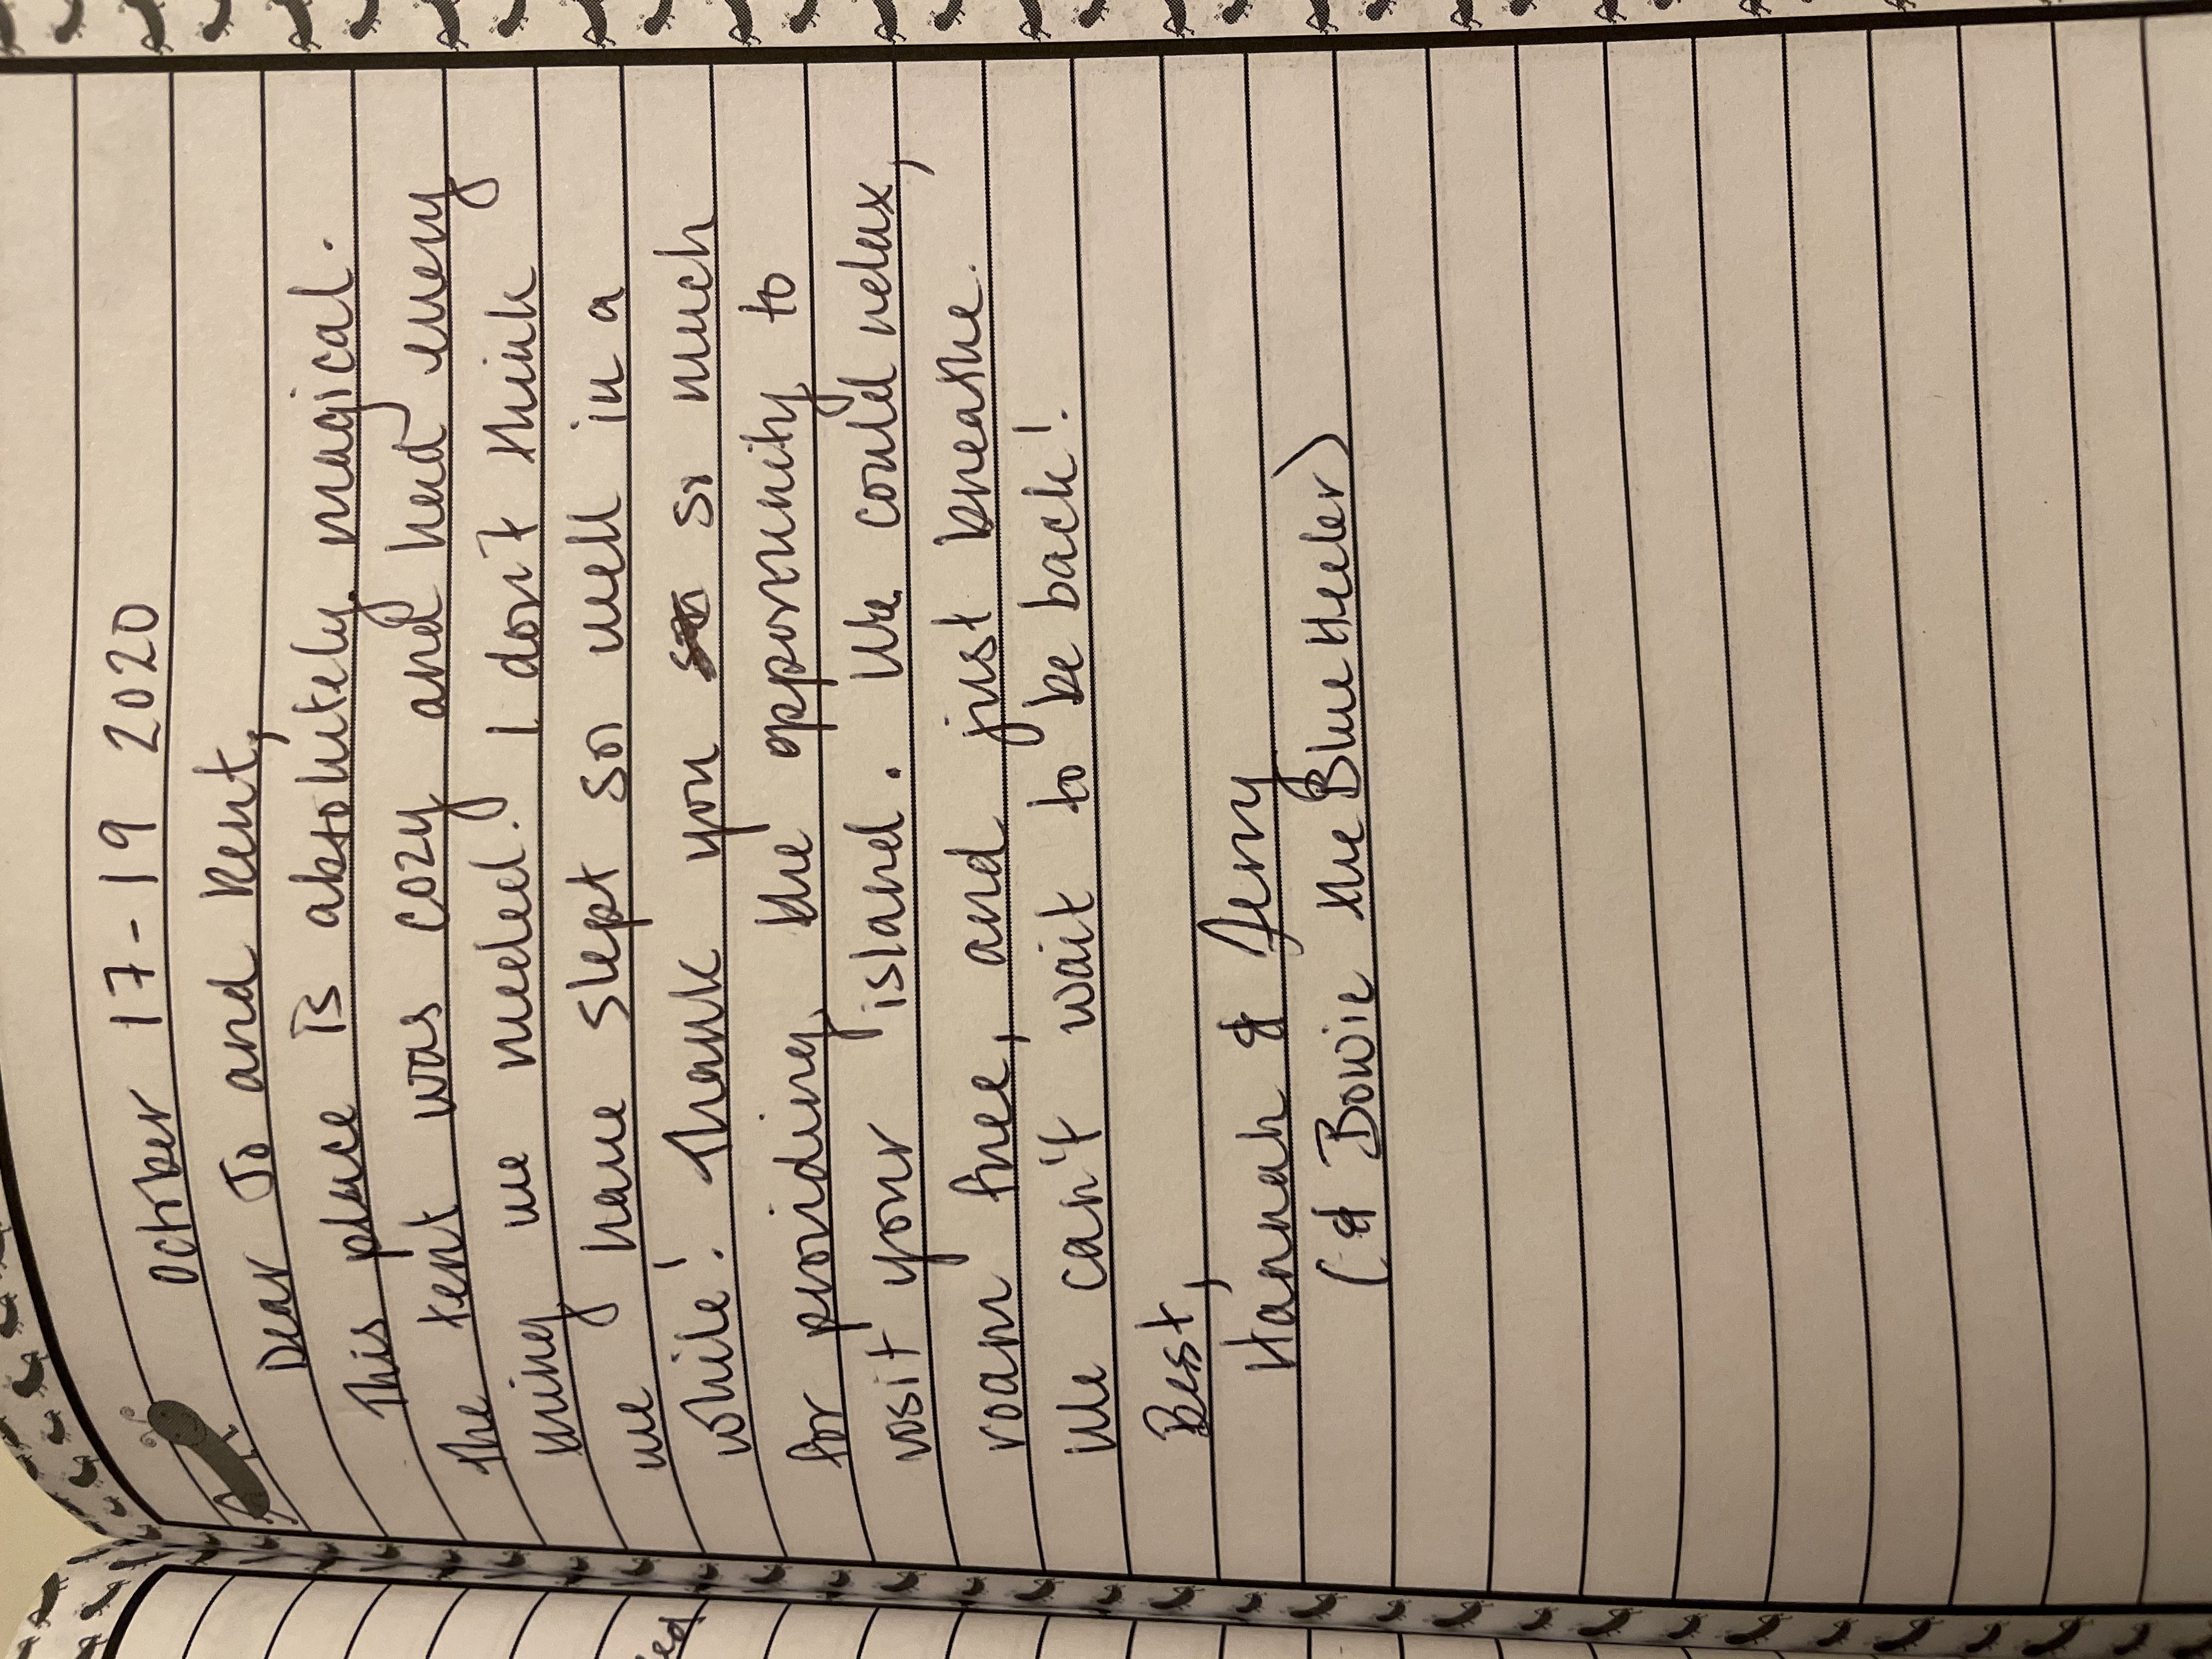 October 17-19 2020
Dear Jo and Kent,
This place is absolutely magical.
The tent was cozy and had every
thing we needed. I don't think
we have slept so well in a
while! Thank you so much
for providing the opportunity to
visit your island. We could relax,
roam free, and just breathe.
We can't wait to be back!
Best,
Hannah &
(& Bowie the Blue Heeler)